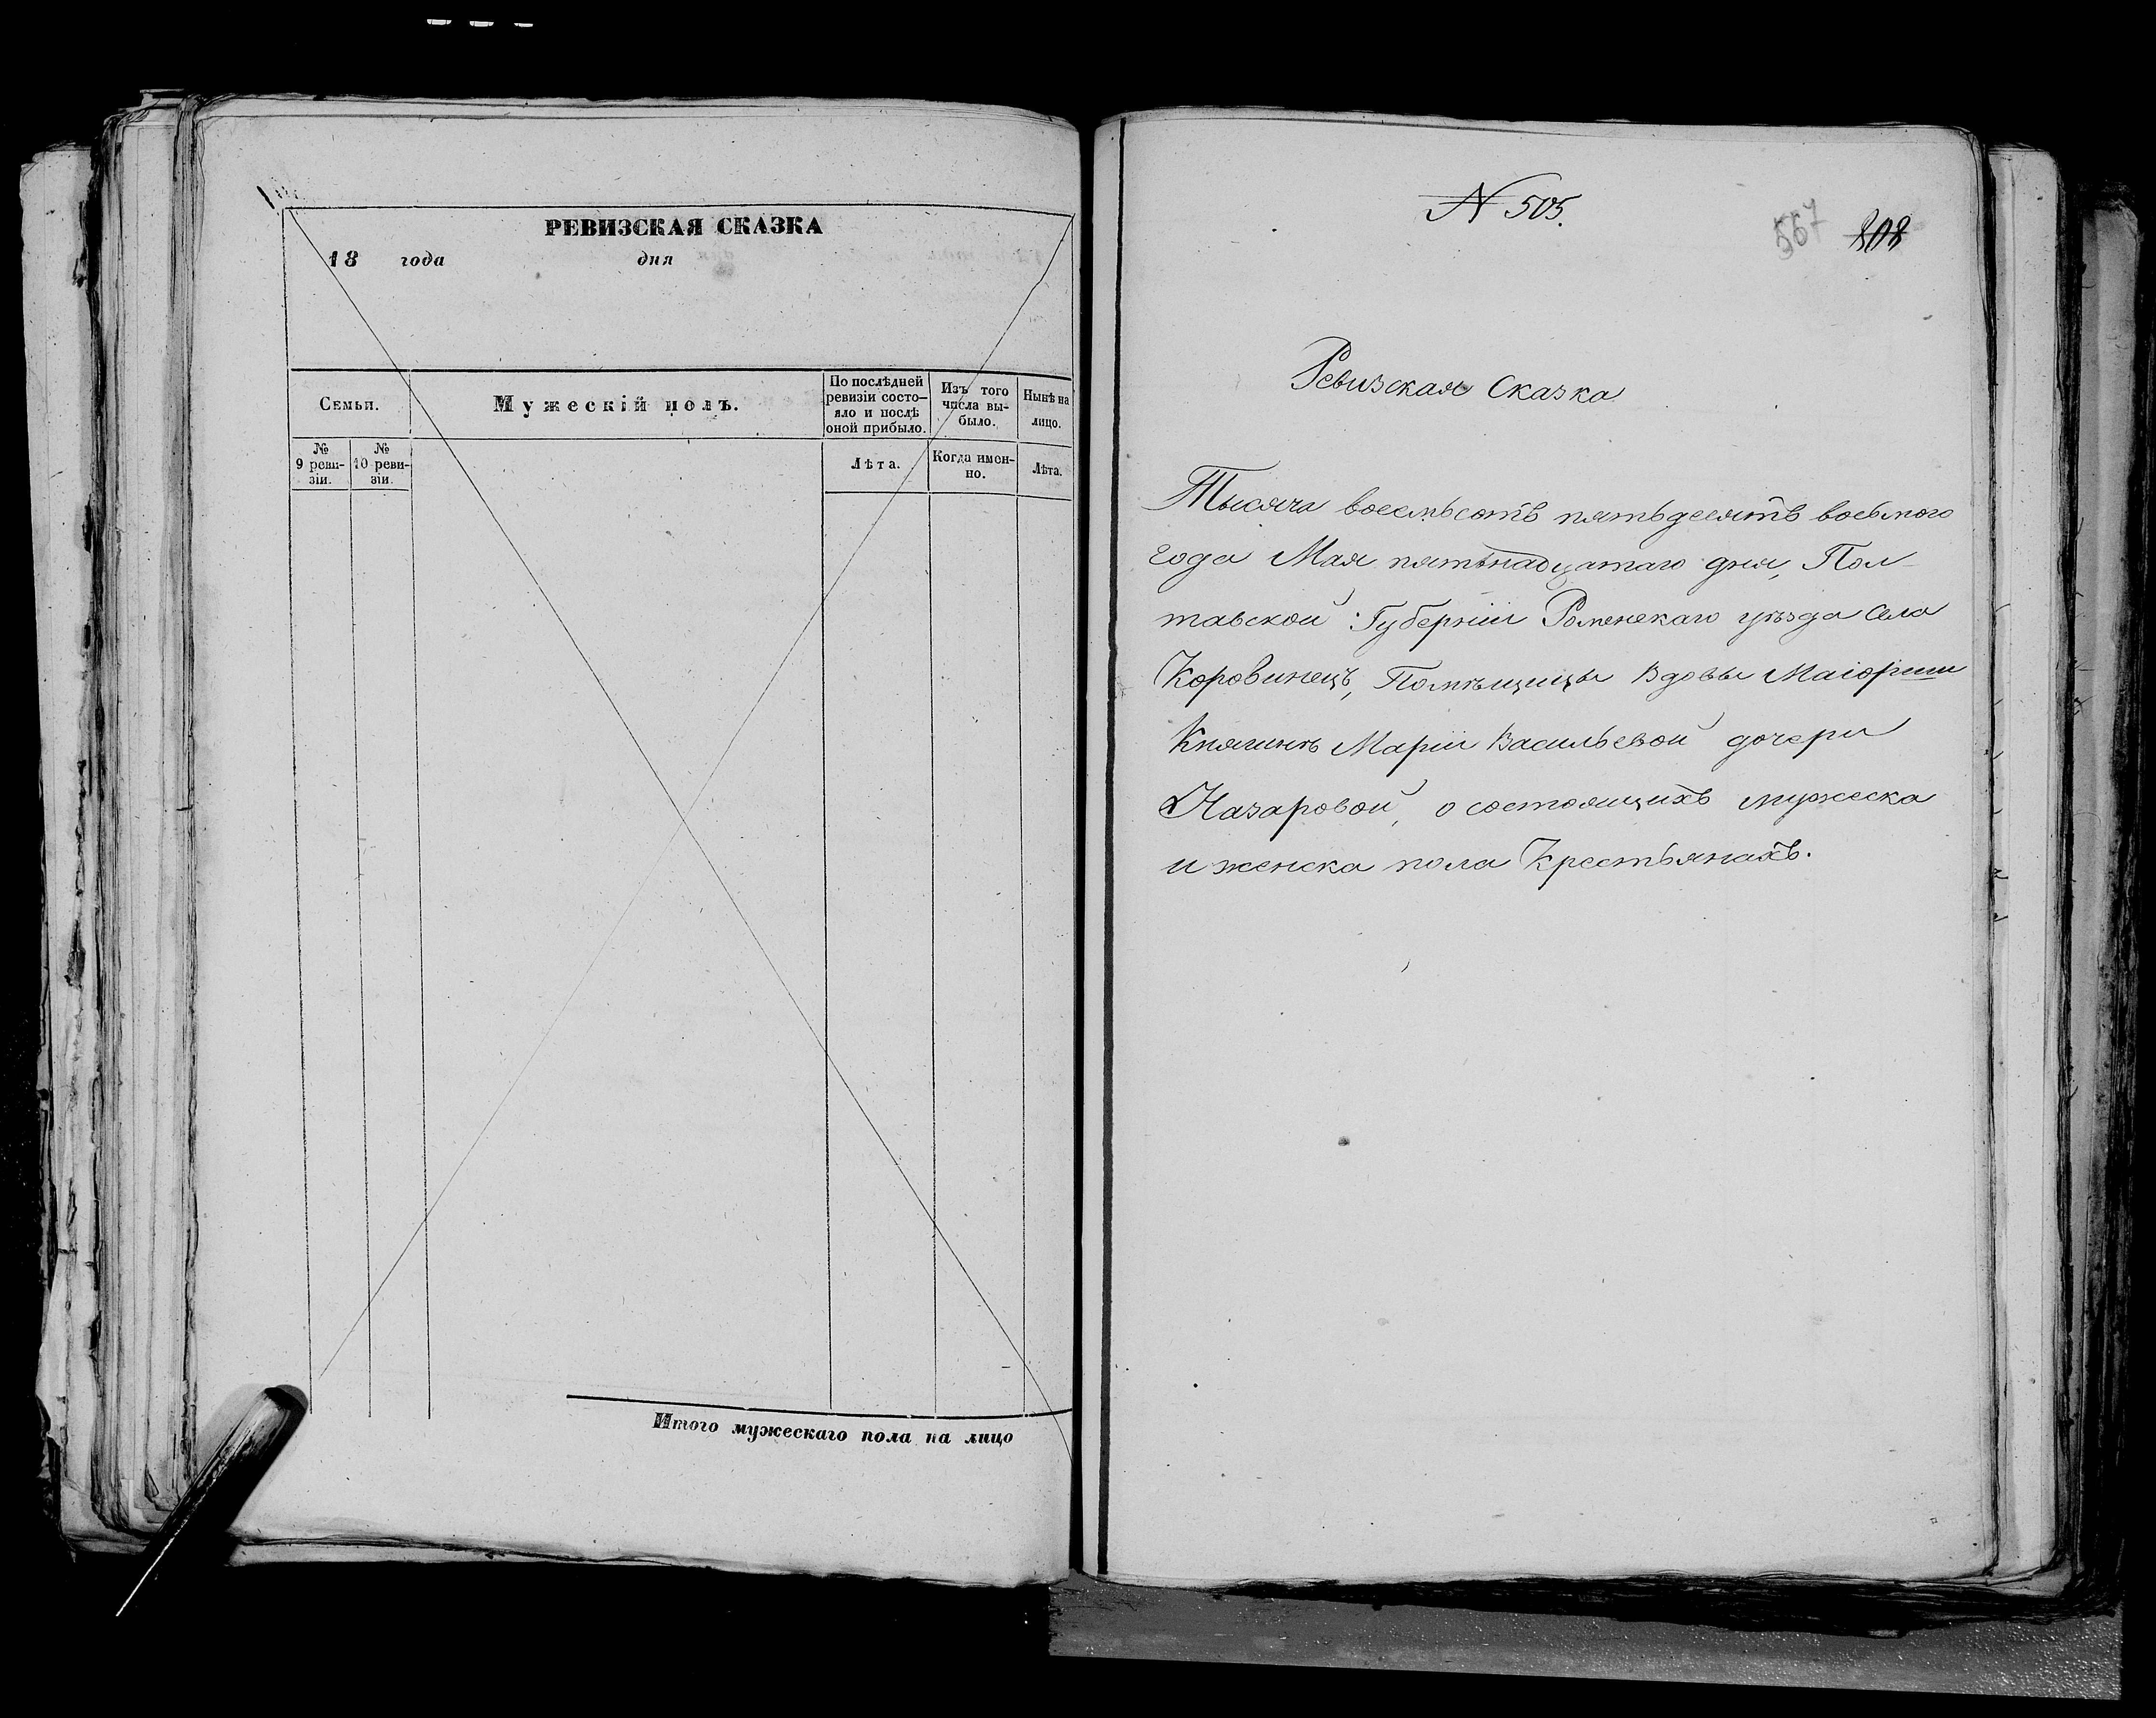 РЕВИЗСКАЯ СКАЗКА
18 года дня
Семьи.
Мужескій полъ.
По послѣдней
ревизіи состо-
яло и послѣ
оной прибыло.
Изъ того
числа вы-
было.
Нынѣ на
лицо.
№
9 реви-
зіи.
№
10 реви-
зіи.
Лѣта.
Когда имен-
но.
Лѣта.
Итого мужескаго пола на лицо
N 505.
567
808
Ревизская Сказка
Тысяча восемьсотъ пятьдесятъ восьмого
года Мая пятьнадцатаго дня, Пол-
тавской Губерніи Роменскаго уѣзда села
Коровинецъ, Помѣщицы Вдовы Маіорши
Княгинѣ Маріи Васильевой дочери
Назаровой, о состоящихъ мужеска
и женска пола Крестьянахъ.